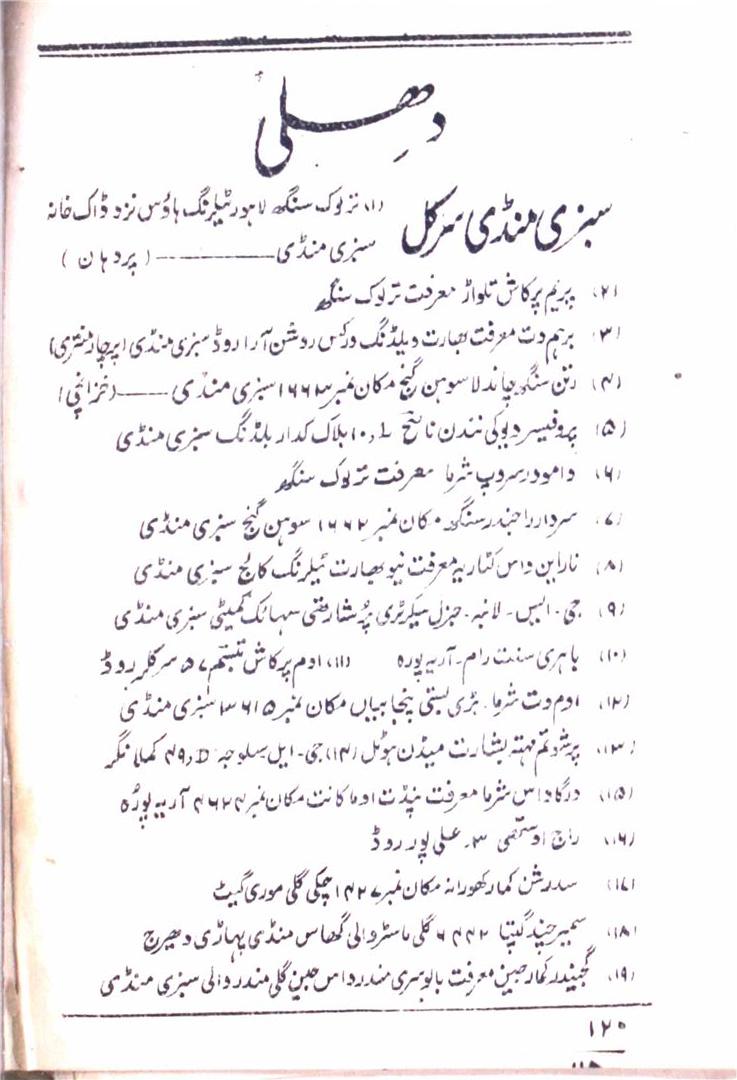 دھلی
سبزی منڈی سرکل (۱) ترلوک سنگھ لاہور ٹیلرنگ ہاؤس نزد ڈاک خانہ
سبزی منڈی ــــــــــ (پردہان)
(۲) پریم پرکاش تلواڑ معرفت ترلوک سنگھ
(۳) برہم دت معرفت بھارت ویلڈنگ ورکس روشن آرا روڈ سبزی منڈی (پرچار منتری)
(۴) رتن سنگھ چاندلا سوہن گنج مکان نمبر ۱۶۶۳ سبزی منڈی ــــــ (خزانچی)
(۵) پروفیسر دیوکی نندن ۱۰ بلاک کدار بلڈنگ سبزی منڈی
(۶) دامودر سروپ شرما معرفت ترلوک سنگھ
(۷) سردار راجندر سنگھ مکان نمبر ۱۶۶۲ سوہن گنج سبزی منڈی
(۸) نارائن داس کٹاریہ معرفت نیو بھارت ٹیلرنگ کالج سبزی منڈی
(۹) جی۔ ایس۔ لانبہ۔ جنرل سیکرٹری پرشارتھی سہائک کمیٹی سبزی منڈی
(۱۰) باہری سنت رام۔ آریہ پورہ (۱۱) اوم پرکاش تبسم ۵۷ سرکلر روڈ
(۱۲) اوم دت شرما۔ بڑی بستی پنجابیاں مکان نمبر ۳۶۱۵ سبزی منڈی
(۱۳) پرشوتم مہتہ بشارت میڈن ہوٹل (۱۴) جی۔ ایل سلوجہ ۴۹,D کملا نگر
(۱۵) درگا داس شرما معرفت پنڈت اوما کانت مکان نمبر ۴۶۲۴ آریہ پورہ
(۱۶) راج اوستھی ۳۔ علی پور روڈ
(۱۷) سدرشن کمار کھورانہ مکان نمبر ۱۴۲۷ چکی گلی موری گیٹ
(۱۸) سمیر چند گپتا ۶۴۴۲ گلی ماسٹر والی گھاس منڈی پہاڑی دھیرج
(۱۹) گجیندر کمار جین معرفت بابو سری مندر داس جین گلی مندر والی سبزی منڈی
۱۲۰